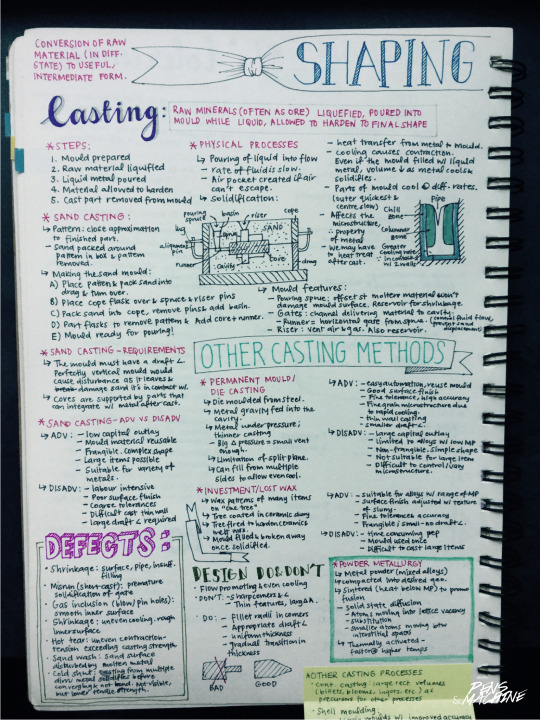 CONVERSION OF RAW
MATERIAL (IN DIFF.
STATE) TO USEFUL,
INTERMEDIATE FORM.
SHAPING
Casting:
RAW MINERALS (OFTEN AS ORE) LIQUEFIED, POURED INTO
MOULD WHILE LIQUID, ALLOWED TO HARDEN TO FINAL SHAPE
* STEPS:
1. Mould prepared
2. Raw material liquified
3. Liquid metal poured
4. Material allowed to harden
5. Cast part removed from mould
* PHYSICAL PROCESSES
↳ Pouring of liquid into flow
- rate of fluid is slow.
- Air pocket created if air
can't escape.
↳ Solidification:
- heat transfer from metal → mould.
- cooling causes contraction.
Even if the mould filled w/ liquid
metal, volume ↓ as metal cools &
solidifies.
- Parts of mould cool @ diff. rates.
(outer quickest &
centre slow)
- Affects the
microstructure,
∴ property
of metal
- We may have
to heat treat
after cast.
Pipe
Chill
zone
Columnar
zone
Greater
cooling rate
in contact
w/ 2 walls
* SAND CASTING:
↳ Pattern: close approximation
to finished part.
- Sand packed around
pattern in box & pattern
removed.
↳ Making the sand mould:
A) Place pattern & pack sand into
drag & turn over.
B) Place cope flask over & sprue & riser pins
C) Pack sand into cope, remove pins & add basin.
D) Part flasks to remove pattern & Add core + runner.
E) Mould ready for pouring!
pouring
sprue
basin
riser
cope
lug
SAND
alignment
pin
runner
cavity
core
drag
↳ Mould features:
- Pouring sprue: offset st molten material won't
damage mould surface. Reservoir for shrinkage.
- Gates: channel delivering material to cavity.
- Runner = horizontal gate from sprue.
- Riser: vent air & gas. Also reservoir.
* SAND CASTING - REQUIREMENTS
↳ The mould must have a draft ∠.
Perfectly vertical mould would
cause disturbance as it leaves &
damage sand it's in contact w.
↳ Cores are supported by parts that
can integrate w/ metal after cast.
* SAND CASTING - ADV VS DISADV
↳ ADV: - low capital outlay
- Mould material reusable
- Frangible. Complex shape
- Large items possible
- Suitable for variety of
metals.
↳ DISADV: - labour intensive
- Poor surface finish
- Coarse tolerances
- Difficult cast thin wall
- large draft ∠ required
OTHER CASTING METHODS
* PERMANENT MOULD/
DIE CASTING
↳ Die made from steel.
↳ Metal gravity fed into the
cavity.
↳ Metal under pressure;
thinner casting
- Big Δ pressure = small vent
enough.
↳ Limitation of split plane.
↳ Can fill from multiple
sides to allow even cool.
↳ ADV: - easy automation, reuse mould
- Good surface finish
- Fine tolerance, high accuracy
- Fine grain microstructure due
to rapid cooling.
- Thin wall casting
- smaller draft ∠.
↳ DISADV: - Large capital outlay
- limited to alloys w/ low MP
- Non-frangible. Simple shape
- Not suitable for large item
- Difficult to control/vary
microstructure.
* INVESTMENT/LOST WAX
↳ Wax patterns of many items
on "one tree"
↳ Tree coated in ceramic slurry
↳ Tree fired to harden ceramic &
melt wax.
↳ Mould filled & broken away
once solidified.
↳ ADV: - suitable for alloys w/ range of MP
- Surface finish adjusted w/ texture
of slurry.
- Fine tolerance & accuracy
- Frangible; small - no draft ∠.
↳ DISADV: - time consuming pep
- Mould used once
- Difficult to cast large items
DEFECTS:
• Shrinkage: surface, pipe, insuff.
filling
• Misrun (short-cast): premature
solidification of gate
• Gas inclusion (blow/pin holes):
smooth inner surface
• Shrinkage: uneven cooling. rough
inner surface.
• Hot tear: uneven contraction -
tension exceeding casting strength
• Sand wash: sand surface
disturbed by molten metal
• Cold shut: casting from multiple
dirn/ metal solidifies before
converging & not bond. Not visible,
but low tensile strength.
DESIGN DO & DON'T
• Flow promoting & even cooling
• DON'T: - sharp corners & ∠
- Thin features, large Δ A.
• DO: - Fillet radii in corners
- Appropriate draft ∠
- uniform thickness
- Gradual transition in
thickness
BAD
GOOD
* POWDER METALLURGY
↳ Metal powder (mixed alloys)
↳ Compacted into desired geo.
↳ Sintered (heat below MP) to promo
fusion
- Solid state diffusion
- Atoms moving into lattice vacancy
substitution
- Smaller atoms moving btw
interstitial spaces
↳ Thermally activated -
faster @ higher temps
AOTHER CASTING PROCESSES
- Cont. casting: large rect. volumes
(billets, blooms, ingots, etc.) as
precursors for other processes
- Shell moulding.
moulds w/ improved accuracy
PENS
& MACHINE